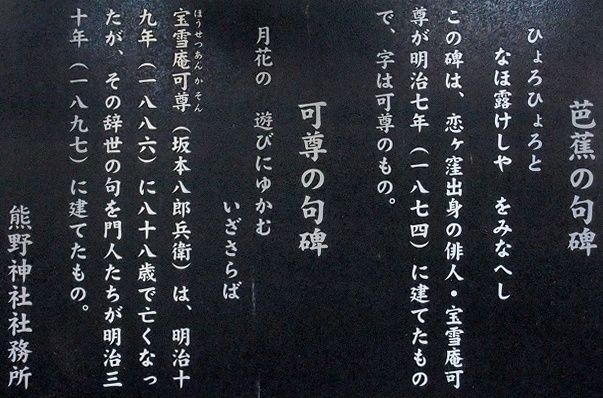 芭蕉の句碑
ひょろひょろと
なほ露けしや をみなへし
この碑は、恋ヶ窪出身の俳人・宝雪庵可
尊が明治七年（一八七四）に建てたもの
で、字は可尊のもの。
可尊の句碑
月花の 遊びにゆかむ
いざさらば
ほうせつあんかそん
宝雪庵可尊（坂本八郎兵衛）は、明治十
九年（一八八六）に八十八歳で亡くなっ
たが、その辞世の句を門人たちが明治三
十年（一八九七）に建てたもの。
熊野神社社務所